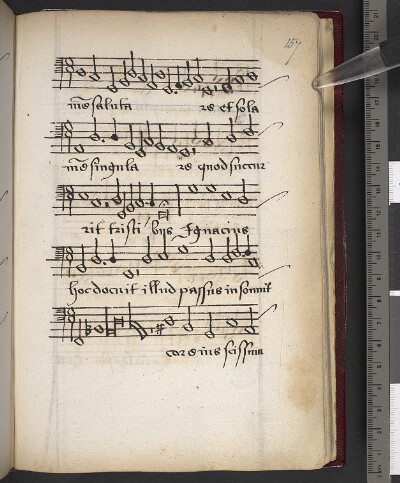 157
mē saluta re et sola
mē singula re quod succur
rit tristibus Ignacius
hoc docuit illud passus in somnit
cor eius scissum